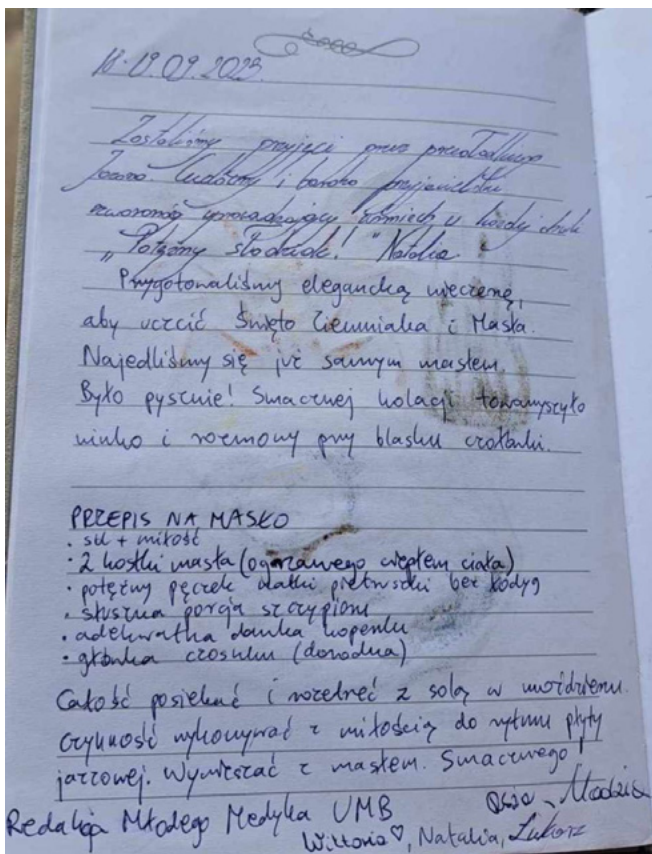 18-19.09.2023.
Zostaliśmy przyjęci przez
i bardzo
czworonóg wprowadzający uśmiech u każdej
„Potężny słodziak!" Natalia
Przygotowaliśmy elegancką wieczerzę,
aby uczcić Święto Ziemniaka i Masła.
Najedliśmy się już samym masłem.
Było pysznie! Smacznej kolacji towarzyszyło
winko i rozmowy przy blasku czołówki.
PRZEPIS NA MASŁO
• sól + miłość
• 2 kostki masła (ogrzanego ciepłem ciała)
• potężny pęczek natki pietruszki bez łodyg
• słuszna porcja szczypioru
• adekwatna dawka koperku
• główka czosnku (dorodna)
Całość posiekać i rozetrzeć z solą w moździerzu.
Czynność wykonywać z miłością do rytmu płyty
jazzowej. Wymieszać z masłem. Smacznego!
Redakcja Młodego Medyka UMB
Wiktoria ♡, Natalia, Łukasz